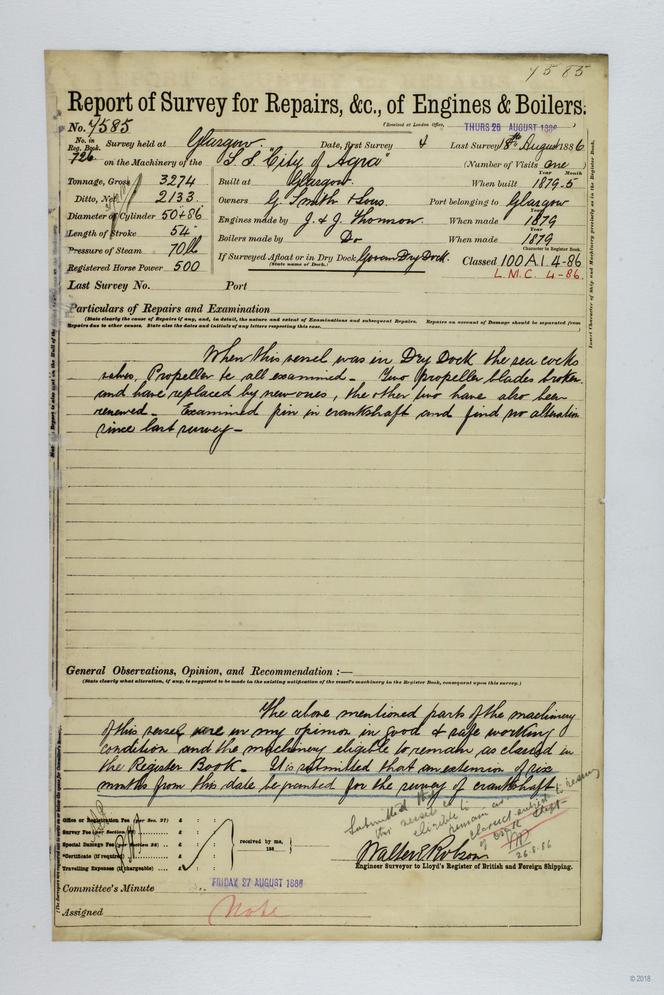 7585
Report of Survey for Repairs, &c., of Engines & Boilers.
No. 7585
(Received at London Office, THURS 26 AUGUST 1886)
No. in Reg. Book. 726 Survey held at Glasgow. Date, first Survey & Last Survey 8th August 1886
on the Machinery of the S.S. "City of Agra" (Number of Visits one)
Year Month
Tonnage, Gross 3274 Built at Glasgow. When built 1879-5
Ditto, Net 2133 Owners G. Smith & Sons. Port belonging to Glasgow
Diameter of Cylinder 50+86 Engines made by J. & J. Thomson. When made Year 1879
Length of Stroke 54"
Pressure of Steam 70 lb Boilers made by Do When made Year 1879
Registered Horse Power 500 If Surveyed Afloat or in Dry Dock Govan Dry Dock. (State name of Dock.) Character in Register Book. Classed 100 A.1. 4-86
L.M.C. 4-86.
Last Survey No. Port
Particulars of Repairs and Examination
(State clearly the cause of Repairs if any, and, in detail, the nature and extent of Examinations and subsequent Repairs. Repairs on account of Damage should be separated from
Repairs due to other causes. State also the dates and initials of any letters respecting this case.)
When this vessel was in Dry Dock the sea cocks
valves, Propeller &c all examined - Two propeller blades broken
and have replaced by new ones, the other two have also been
renewed - Examined pin in crankshaft and find no alteration
since last survey -
General Observations, Opinion, and Recommendation :—
(State clearly what alteration, if any, is suggested to be made in the existing notification of the vessel's machinery in the Register Book, consequent upon this survey.)
The above mentioned parts of the machinery
of this vessel were in my opinion in good & safe working
condition and the machinery eligible to remain as classed in
the Register Book - It is submitted that an extension of six
months from this date be granted for the survey of crankshaft
Submitted that
this vessel is
eligible to
remain as
classed subject to
of crank shaft
26.8.86
Office or Registration Fee (per Sec. 27) £ : :
Survey Fee (per Section 28) £ : :
Special Damage Fee (per Section 28) £ : :
*Certificate (if required) £ : :
Travelling Expenses (if chargeable) £ : :
received by me,
188
Walter E Robson
Engineer Surveyor to Lloyd's Register of British and Foreign Shipping.
Committee's Minute FRIDAY 27 AUGUST 1886
Assigned Note
Insert Character of Ship and Machinery precisely as in the Register Book.
© 2018